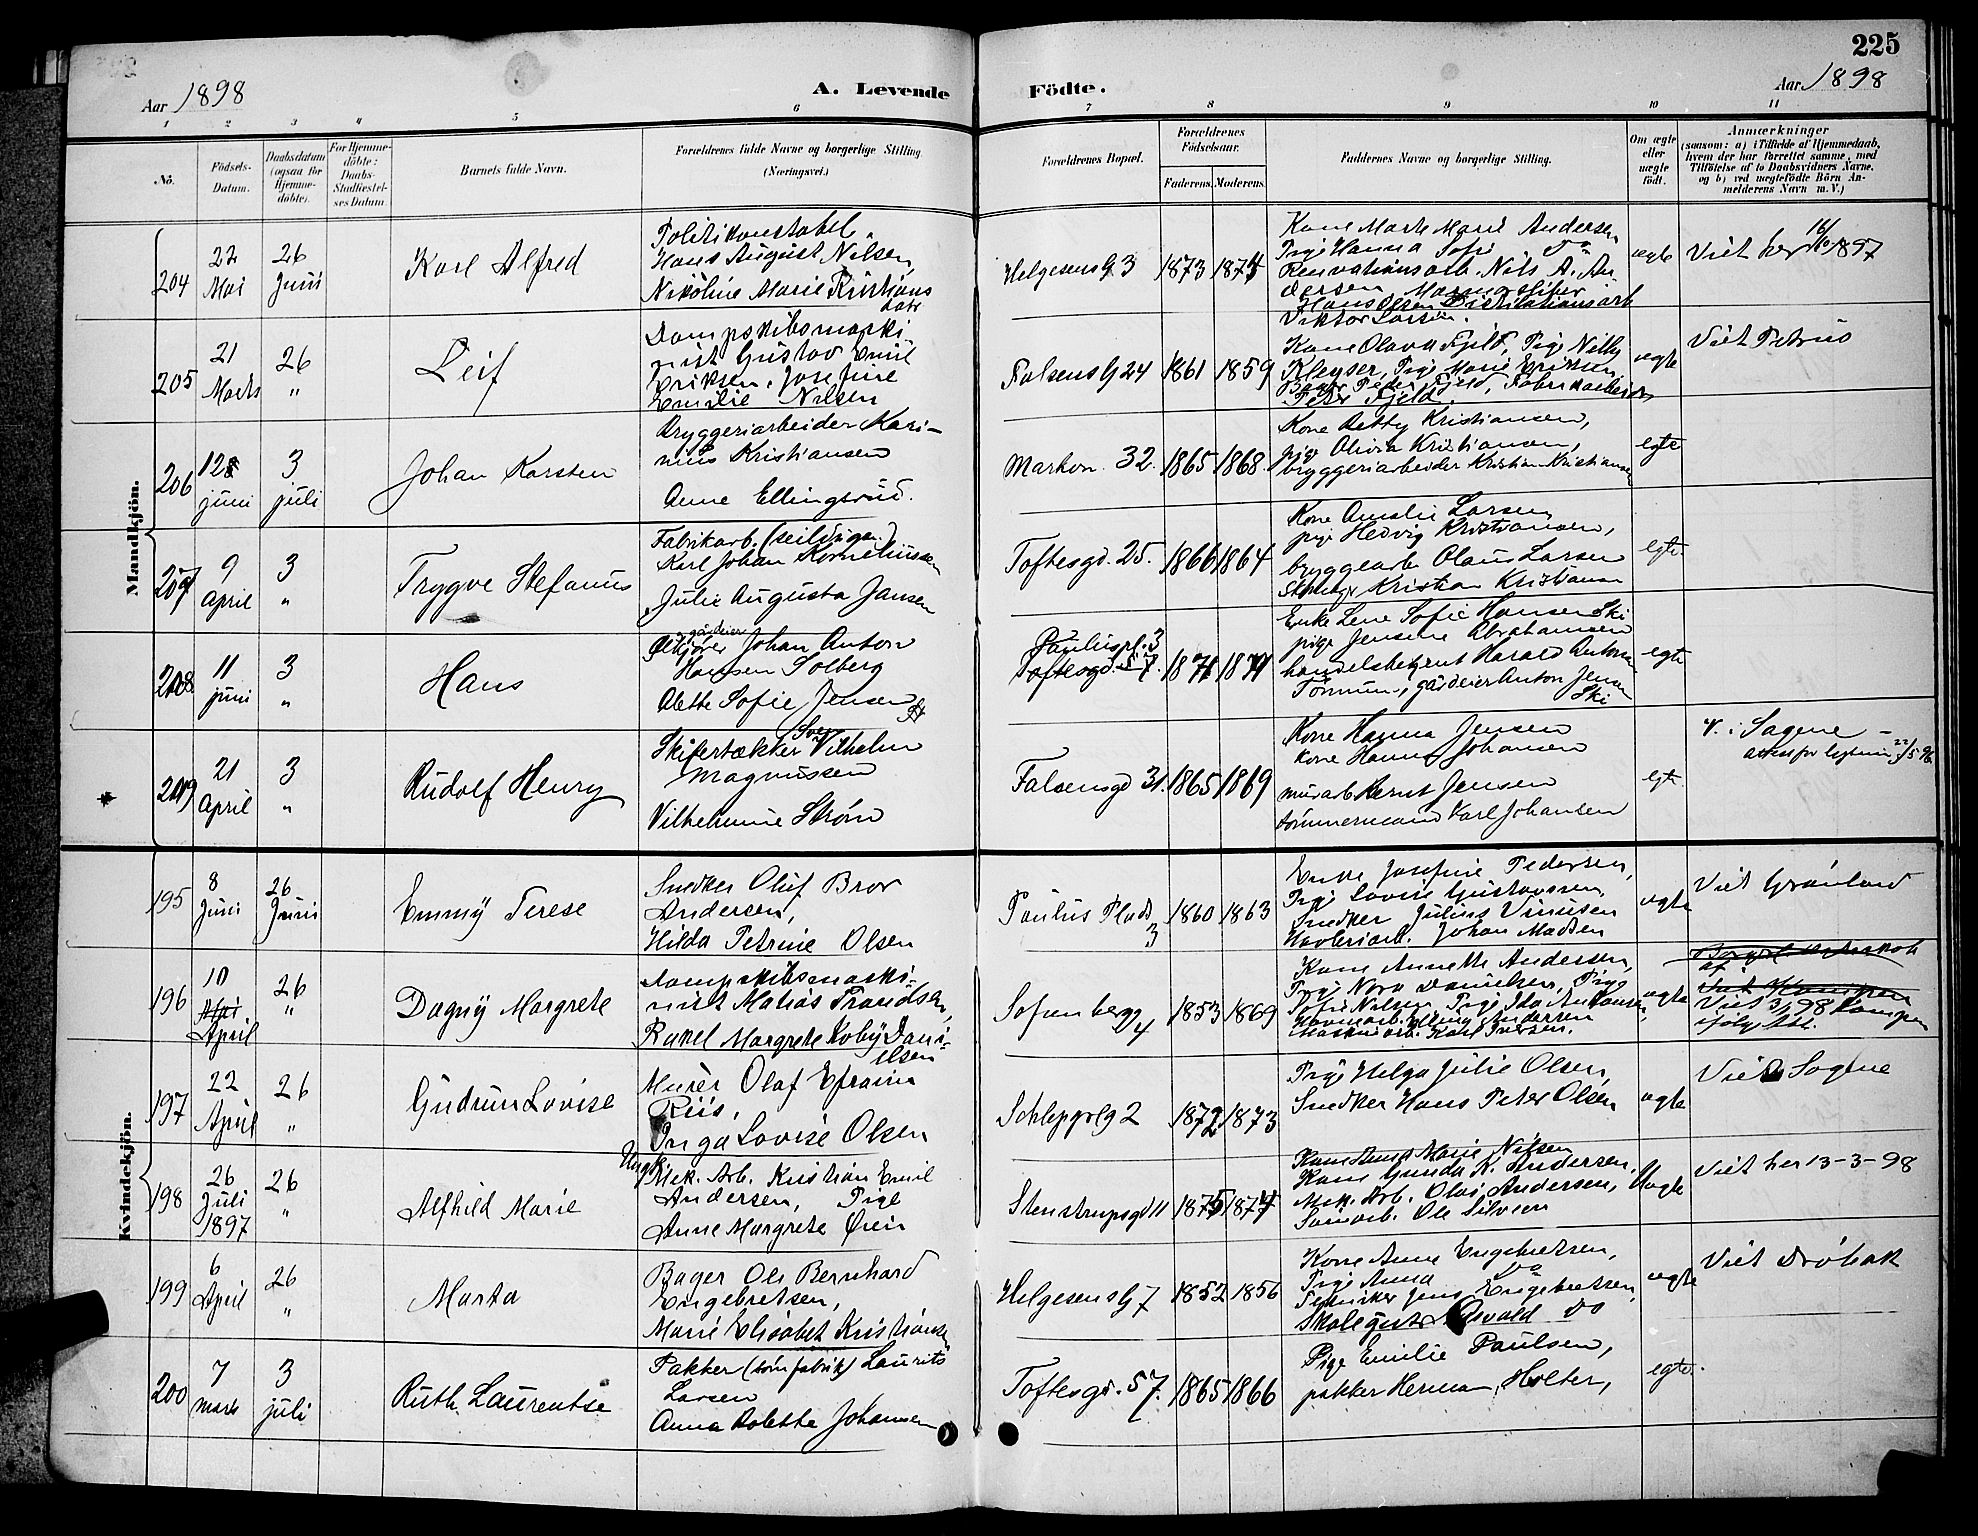 225
Aar 1898
A. Levende
Födte.
Aar 1898
1 2 3 4 5 6 7 8 9 10 11
No.
Födsels-Datum.
Daabsdatum (ogsaa for Hjemme-döbte).
For Hjemme-döbte: Daabs-Stadfæstel-ses Datum
Barnets fulde Navn.
Forældrenes fulde Navne og borgerlige Stilling. (Næringsvei.)
Forældrenes Bopæl.
Forældrenes Födselsaar.
Faderens. Moderens.
Faddernes Navne og borgerlige Stilling.
Om ægte eller uægte födt.
Anmærkninger
(saasom: a) i Tilfælde af Hjemmedaab,
hvem der har forrettet samme, med
Tilföielse af to Daabsvidners Navne,
og b) ved uægtefödte Börn An-
melderens Navn m. V.)
Mandkjön.
204 22 Mai 26 Juni Karl Alfred
Politikonstabel
Hans August Nilsen,
Nikoline Marie Kristians
datr
Helgesensg 3 1873 1874
Kone Marte Marie Andersen
Pige Hanna Sofie Do
Renovationsarb. Nils A. An
dersen, Marmorsliber
Hans Olsen Distilationsarb
Viktor Larsen.
ægte Viet her 1897
205 21 Marts 26 " Leif
Dampskibsmaski
nist Gustav Emil
Eriksen, Josefine
Emilie Nilsen
Falsensg 24 1861 1859
Kone Olava Fjeld, Pige Nilly
Kleyser, Pige Marie Eriksen,
Bager Peder Fjeld, Fabrikarbeider
Peter Fjeld.
ægte Viet Petrus
206 12 juni 3 juli Johan Karsten
Bryggeriarbeider Kari-
nius Kristiansen
Anne Ellingsrud.
Markvn. 32. 1865 1868
Kone Betty Kristiansen,
pige Olivia Kristiansen,
bryggeriarbeider Kristian Kristiansen
egte
207 9 april 3 " Trygve Stefanus
Fabrikarb. (seildugsn.)
Karl Johan Korneliussen
Julie Augusta Jansen
Toftesgd. 25. 1866 1864
Kone Amalie Larsen,
pige Hedvig Kristiansen,
bryggearb Olaus Larsen
Kristian Kristiansen
egte.
208 11 juni 3 " Hans
gårdeier
Johan Anton
Hansen Solberg
Alette Sofie Jensen
Pauluspl. 3
Toftesgd. 1871 1874
Enke Lene Sofie Hansen Ski
pige Jensine Abrahamsen
handelsbetjent Harald Anton
gårdeier Anton Jensen
Ski
egte
209 21 April 3 " Rudolf Henry
Sven
Skifertækker Vilhelm
Magnussen
Vilhelmine Strøm
Falsensgd 31. 1865 1869
Kone Hanna Jensen
kone Hanna Johansen
murarb Bernt Jensen
tømmermand Karl Johansen
egt. V. i Sagene -
attest for lysning 22/5 96.
Kvindekjön.
195 8 Juni 26 Juni Emmy Terese
Snedker Oluf Bror
Andersen,
Hilda Petrine Olsen
Paulus Plads 3 1860 1863
Enke Josefine Pedersen,
Pige Lovise Gustavssen,
Snedker Julius Vinusen
Høvleriarb. Johan Madsen
ægte Viet Grønland
196 10 Mai April 26 " Dagny Margrete
Dampskibsmaski-
nist Matias Trandsen,
Rakel Margrete Koby Dani-
elsen
Sofienbergg 4 1853 1869
Kone Annette Andersen,
Pige Nora Danielsen, Pige
Sofie Nilsen, Pige Ida Andersen,
Havnearb. Elling Andersen
Maskinarb. Karl Iversen.
ægte
af
Viet Kampen
Viet 3/1 98 Kampen
ifølg Att.
197 22 April 26 " Gudrun Lovise
Murer Olaf Efraim
Riis,
Inga Lovise Olsen
Schleppelg 2 1872 1873
Pige Helga Julie Olsen,
Snedker Hans Peter Olsen
ægte Viet Sagene
198 26 Juli 1897 26 " Alfhild Marie
Ungk Mek. Arb. Kristian Emil
Andersen, Pige
Anne Margrete Øien
Stenstrupsgd 11 1875 1874
Kone Anna Marie Nilsen
Kone Gunda K. Andersen,
Mek. Arb. Olai Andersen,
Ole Silveen
Uægte Viet her 13-3-98
199 6 April 26 " Marta
Bager Ole Bernhard
Engebretsen,
Marie Elisabet Kristiansen
Helgesensg 7 1852 1856
Kone Anne Engebretsen,
Pige Anna Do
Tekniker Jens Engebretsen,
Skolegut Osvald Do
ægte Viet Drøbak
200 7 marts 3 juli Ruth Laurentse
Pakker (sømfabrik) Laurits
Larsen
Anna Bolette Johansen
Toftesgd. 57. 1865 1866
Pige Emilie Paulsen,
pakker Herman Holter,
egte.